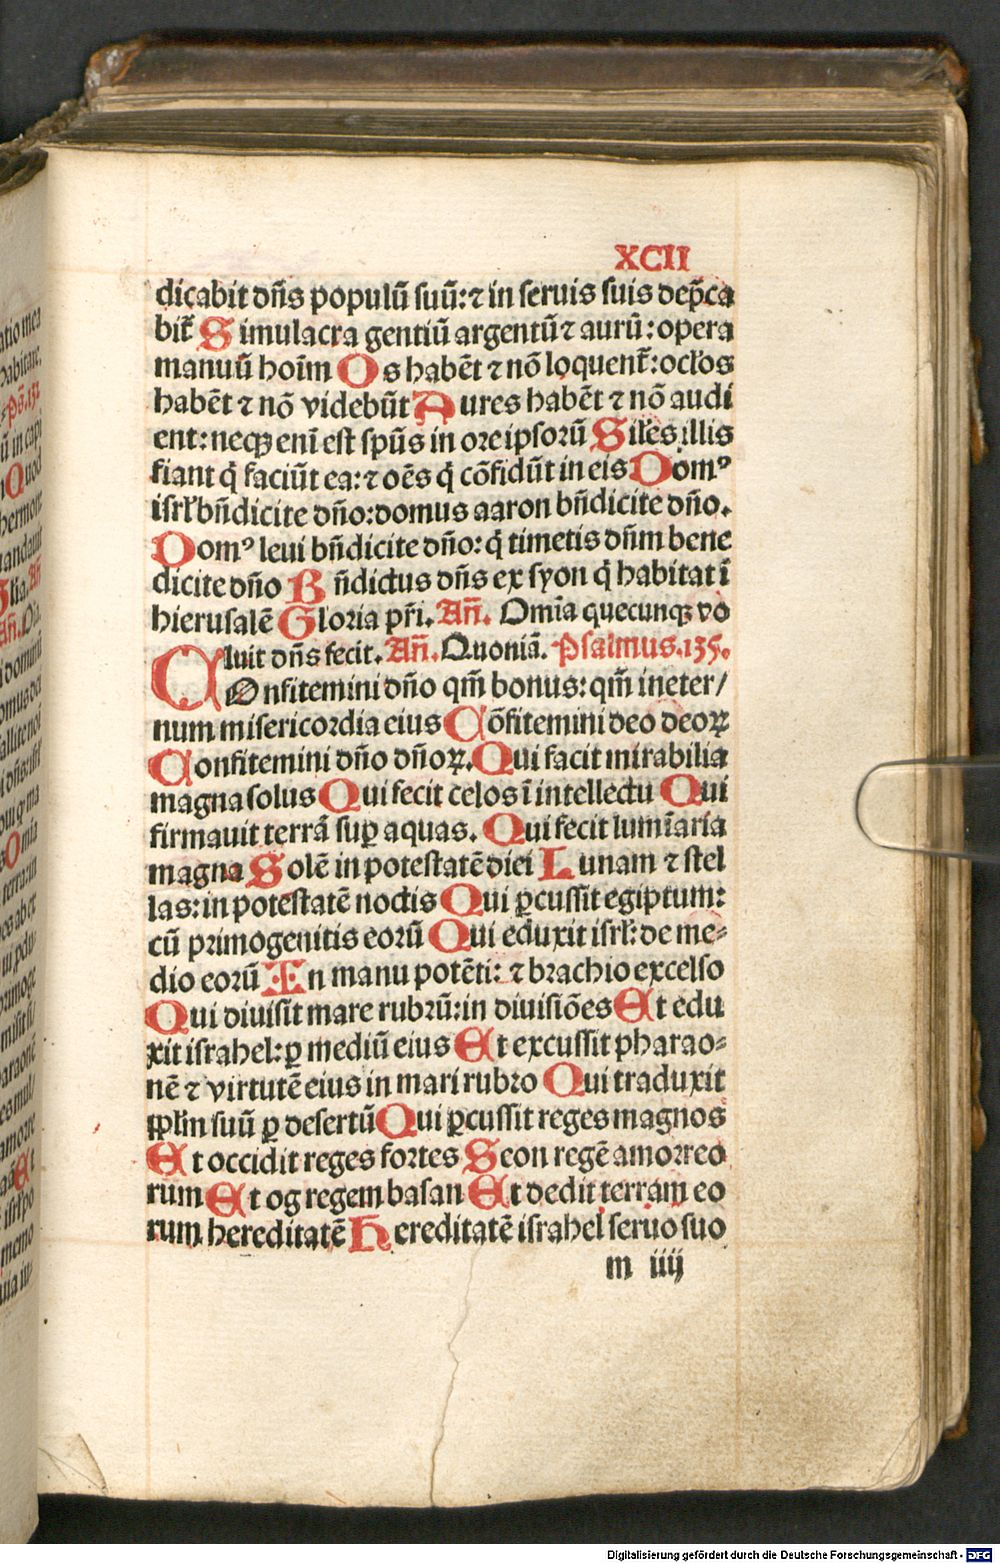 XCII
dicabit dn̄s populū suū: ⁊ in seruis suis dep̄ca
bit᷑ Simulacra gentiū argentū ⁊ aurū: opera
manuū hoīm Os habēt ⁊ nō loquent᷑: oc̄los
habēt ⁊ nō videbūt Aures habēt ⁊ nō audi
ent: neqꝫ enī est sp̄us in ore ipsorū Sil̄es illis
fiant q̄ faciūt ea: ⁊ oēs q̄ cōfidūt in eis Domꝰ
isrl̄ bn̄dicite dn̄o: domus aaron bn̄dicite dn̄o.
Domꝰ leui bn̄dicite dn̄o: q̄ timetis dn̄m bene
dicite dn̄o Bn̄dictus dn̄s ex syon q̄ habitat ī
hierusalē Gloria pr̄i. An̄. Omīa quecunqꝫ vo
luit dn̄s fecit. An̄. Quoniā. Psalmus.135.
COnfitemini dn̄o qm̄ bonus: qm̄ in eter/
num misericordia eius Cōfitemini deo deoꝝ
Confitemini dn̄o dn̄oꝝ. Qui facit mirabilia
magna solus Qui fecit celos ī intellectu Qui
firmauit terrā suꝑ aquas. Qui fecit lumīaria
magna Solē in potestatē diei Lunam ⁊ stel
las: in potestatē noctis Qui ꝑcussit egiptum:
cū primogenitis eorū Qui eduxit isrl̄: de me⸗
dio eorū In manu potēti: ⁊ brachio excelso
Qui diuisit mare rubrū: in diuisiōes Et edu
xit israhel: ꝑ mediū eius Et excussit pharao⸗
nē ⁊ virtutē eius in mari rubro Qui traduxit
ppl̄m suū ꝑ desertū Qui ꝑcussit reges magnos
Et occidit reges fortes Seon regē amorreo
rum Et og regem basan Et dedit terram eo
rum hereditatē Hereditatē israhel seruo suo
m iiij
Digitalisierung gefördert durch die Deutsche Forschungsgemeinschaft - DFG